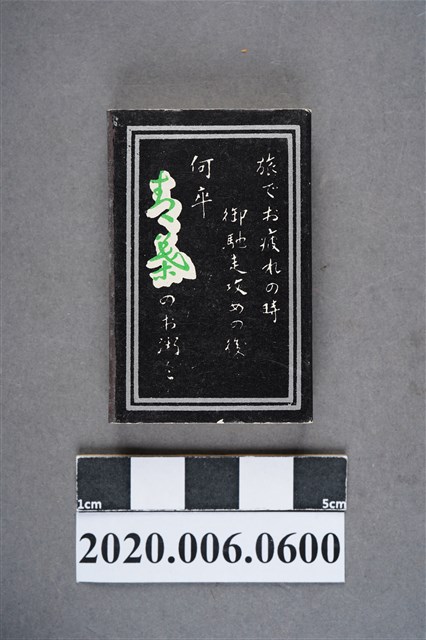 旅でお疲れの時
御馳走攻めの後
何卒
青葉のお粥を
1cm 5cm
2020.006.0600